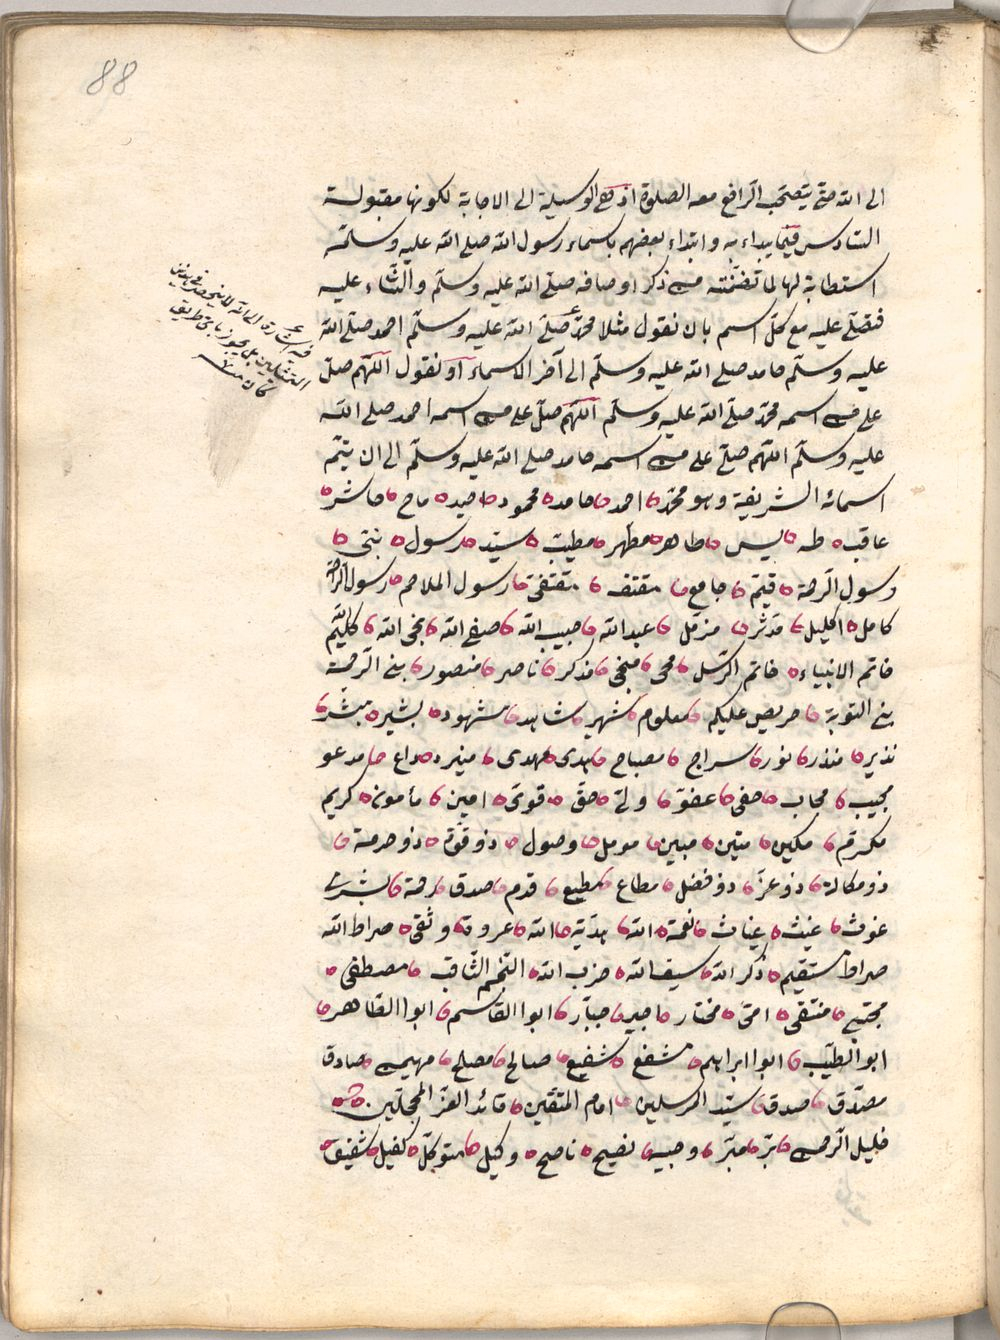 88
الى الله حتى يتصحب الرافع معه الصلوة اذ هى الوسيلة الى الاجابة لكونها مقبولة
السادس فيما يبداء به وابتداء بعضهم باسماء رسول الله صلى الله عليه وسلمه
استطابة لها لما تضمنته من ذكر اوصافه صلى الله عليه وسلم والثناء عليه
فتصلى عليه مع كل اسم بان نقول مثلا محمد صلى الله عليه وسلم احمد صلى الله
عليه وسلم حامد صلى الله عليه وسلم الى آخر الاسماء او نقول اللهم صل
على من اسمه محمد صلى الله عليه وسلم اللهم صل على من اسمه احمد صلى الله
عليه وسلم اللهم صلى على من اسمه حامد صلى الله عليه وسلم الى ان يتم
اسمائه الشريفة وهو محمد احمد حامد محمود احيد ماح حاشر
عاقب طه يس طاهر مطهر مطيب سيد رسول نبى
رسول الرحمة قيم جامع مقتف مقتفى رسول الملاحم رسول الراحة
كامل اكليل مدثر مزمل عبد الله حبيب الله صفى الله نجى الله كليم الله
خاتم الانبياء خاتم الرسل محى منجى مذكر ناصر منصور نبى الرحمة
نبى التوبة حريص عليكم معلوم شهير شاهد مشهود بشير مبشر
نذير منذر نور سراج مصباح هدى مهدى منير داع مدعو
مجيب مجاب حفى عفو ولى حق قوى امين مأمون كريم
مكرم مكين متين مبين مومل وصول ذو قوة ذو حرمة
ذو مكانة ذو عز ذو فضل مطاع مطيع قدم صدق رحمة بشرى
غوث غيث غياث نعمة الله هدية الله عروة وثقى صراط الله
صراط مستقيم ذكر الله سيف الله حزب الله النجم الثاقب مصطفى
مجتبى منتقى امى مختار اجير جبار ابوا القاسم ابوا الطاهر
ابو الطيب ابوا ابراهيم مشفع شفيع صالح مصلح مهيمن صادق
مصدق صدق سيد المرسلين امام المتقين قائد الغر المحجلين
خليل الرحمن بر مبر وجيه نصيح ناصح وكيل متوكل كفيل شفيق